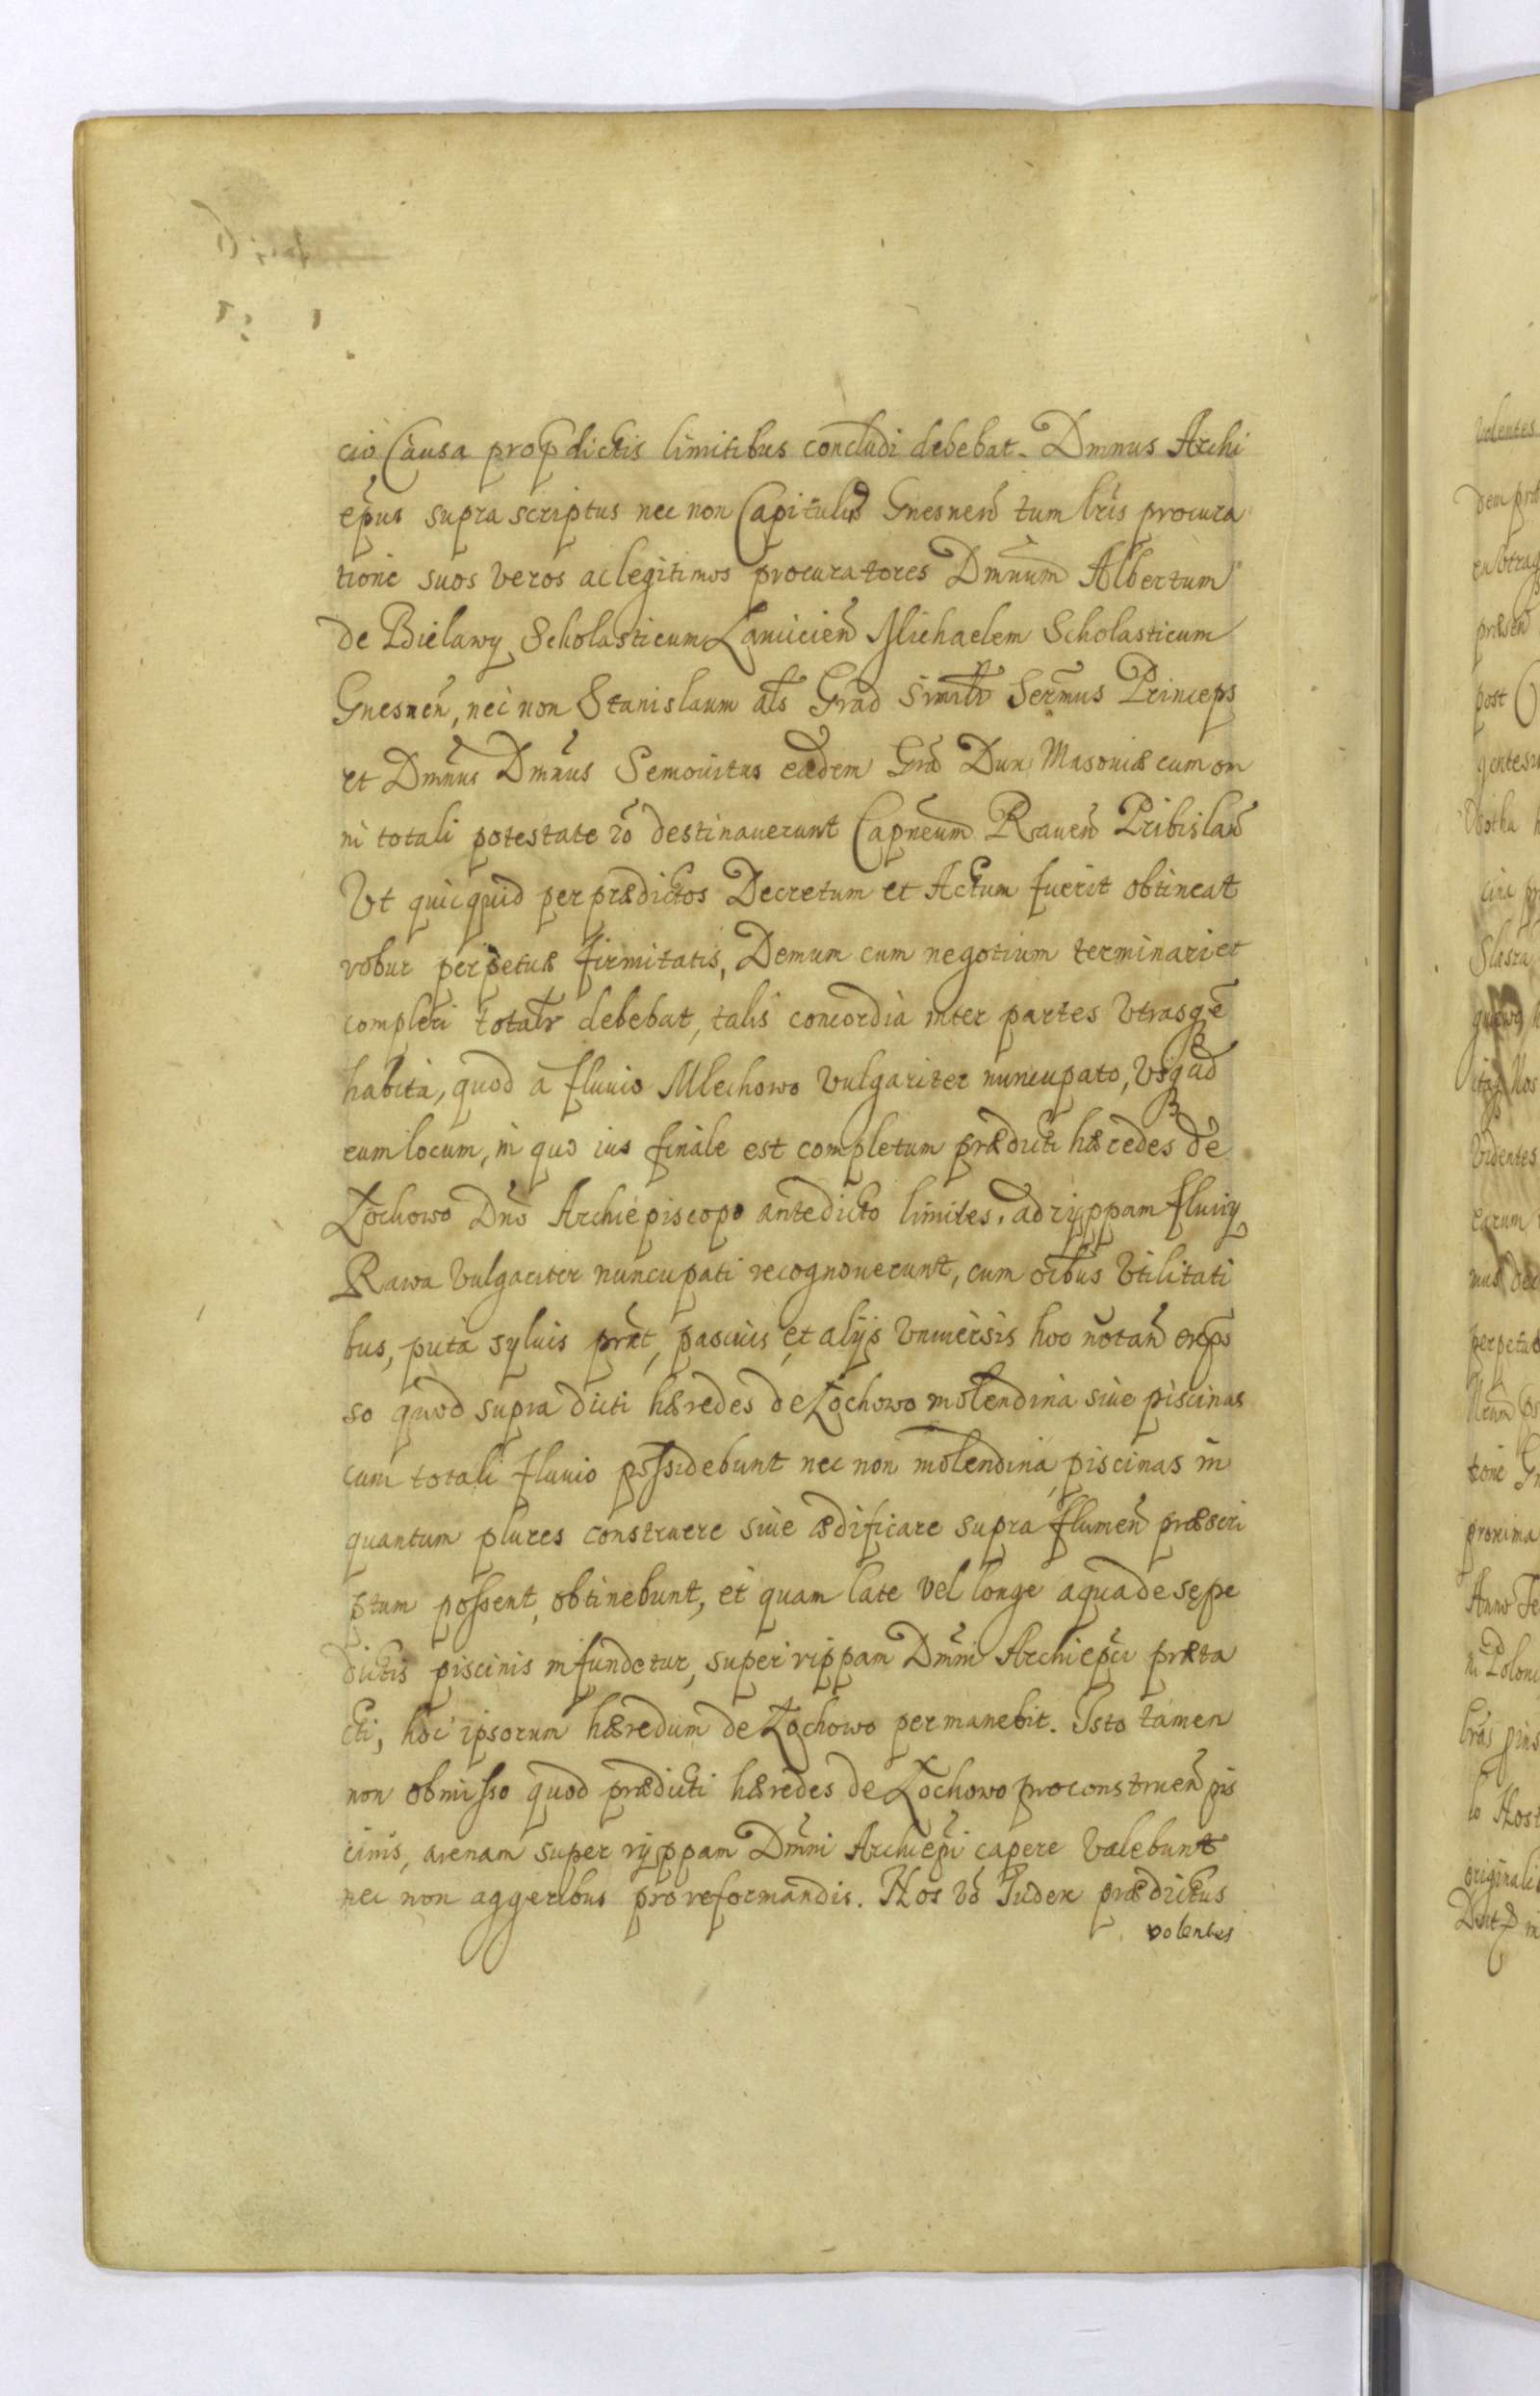 cio Causa pro p̄dictis limitibus concludi debebat. Dmnus Archi
ep̄us supra scriptus nec non Capitulū Gnesneñ cum lr̃is procura
tionē suos veros ac legitimos procuratores Dmn̄um Albertum
de Bielawy Scholasticum Lanicień Michaelem Scholasticum
Gnesneñ, nec non Stanislaum als Grad similr Serm̃us Princeps
et Dmn̄us Dmn̄us Semouitus eadem Grã Dux Masouiæ cum om
ni totali potestate destinauerunt Capneum Raueñ Pribislaũ
Vt quicquid per prædictos Decretum et Actum fuerit obtineat
robur perpetuæ firmitatis, Demum cum negotium terminari et
compleri totalr debebat, talis concordia inter partes Vtrasqe
habita, quod a fluuio Mlechowo vulgariter nuncupato, Vsq ad
eum locum, in quo ius finale est completum prædicti hæredes de
Lochowo Dño Archiepiscopo antedicto limites, ad ryppam fluuij
Rawa vulgariter nuncupati recognouerunt, cum oĩbus Vtilitati
bus, puta syluis prat, pascuis et alijs vniuersis hoc notañ expes
so quod supra dicti hæredes de Lochowo molendina siue piscinas
cum totali fluuio possidebunt nec non molendina, piscinas in
quantum plures construere siue ædificare supra flumeñ præscri
ptum possent, obtinebunt, et quam late vel longe aqua de sępe
dictis piscinis infundetur, super rippam Dmñi Archiep̄i præta
cti, hoc ipsorum hæredum de Lochowo permanebit. Isto tamen
non obmisso quod prædicti hæredes de Lochowo pro construeñ pis
cinis, arenam super ryppam Dmñi Archiep̄i capere valebunt
nec non aggeribus pro reformandis. Nos vō Iudex prædictus
volentes